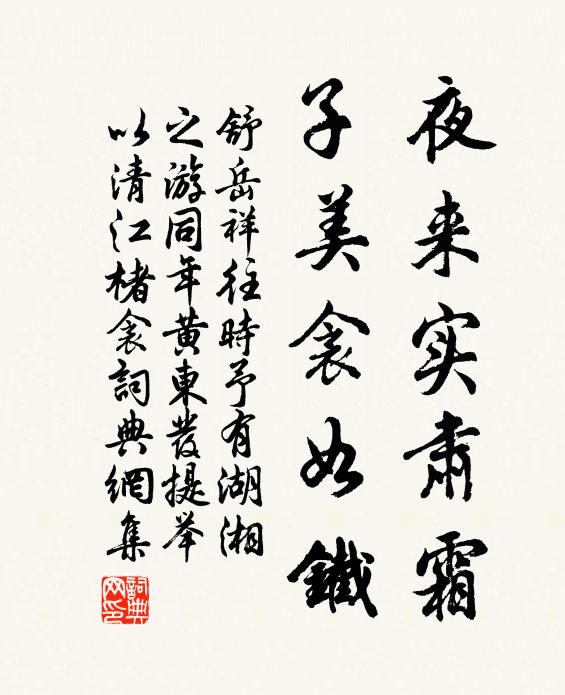 夜来实肃霜
子美衾如鐵
舒岳祥往時予有湖湘
之游同年黄東發提举
以清江楮衾詞典網集
詞典网印